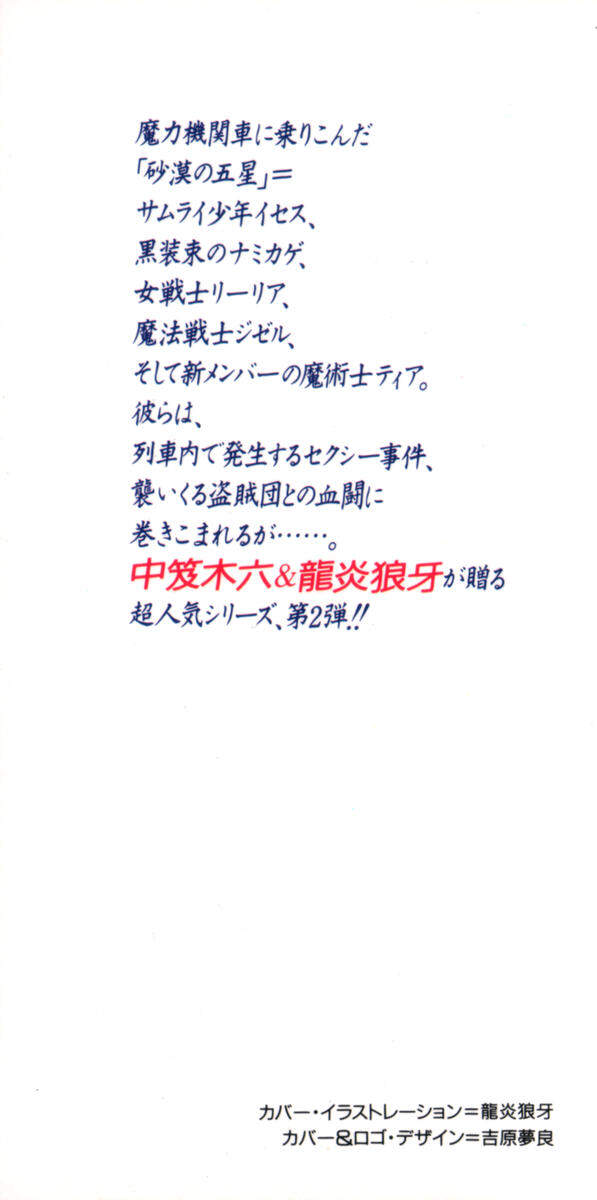 魔力機関車に乗りこんだ
「砂漠の五星」=
サムライ少年イセス、
黒装束のナミカゲ、
女戦士リーリア、
魔法戦士ジゼル、
そして新メンバーの魔術士ティア。
彼らは、
列車内で発生するセクシー事件、
襲いくる盗賊団との血闘に
巻きこまれるが……。
中笈木六&龍炎狼牙が贈る
超人気シリーズ、第2弾!!
カバー・イラストレーション=龍炎狼牙
カバー&ロゴ・デザイン=吉原夢良